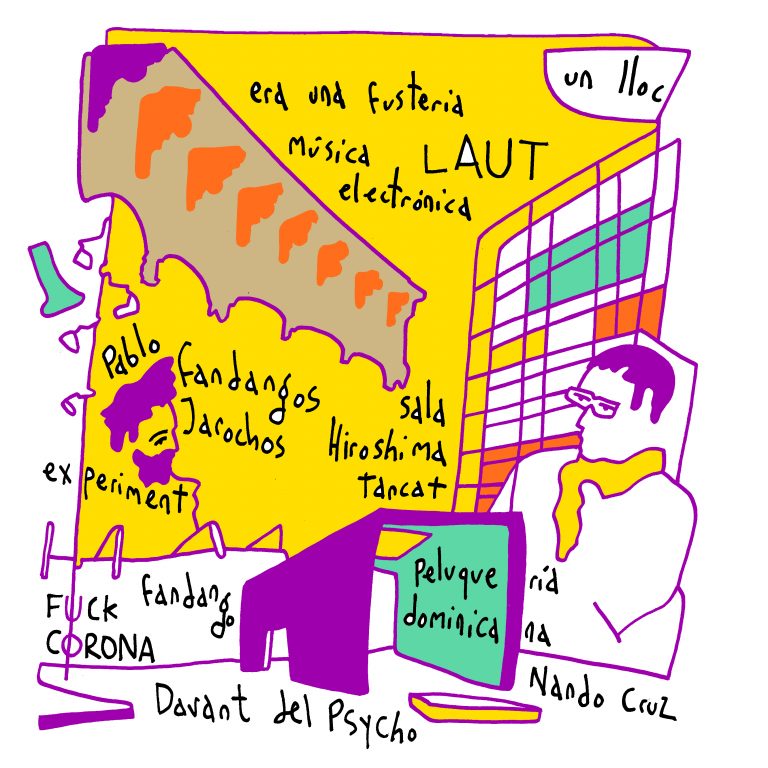 un lloc
era una fusteria
música
electrónica
LAUT
Pablo
fandangos
Jarochos
sala
Hiroshima
tancat
experiment
fandango
FUCK
CORONA
Peluquería
dominicana
Nando Cruz
Davant del Psycho